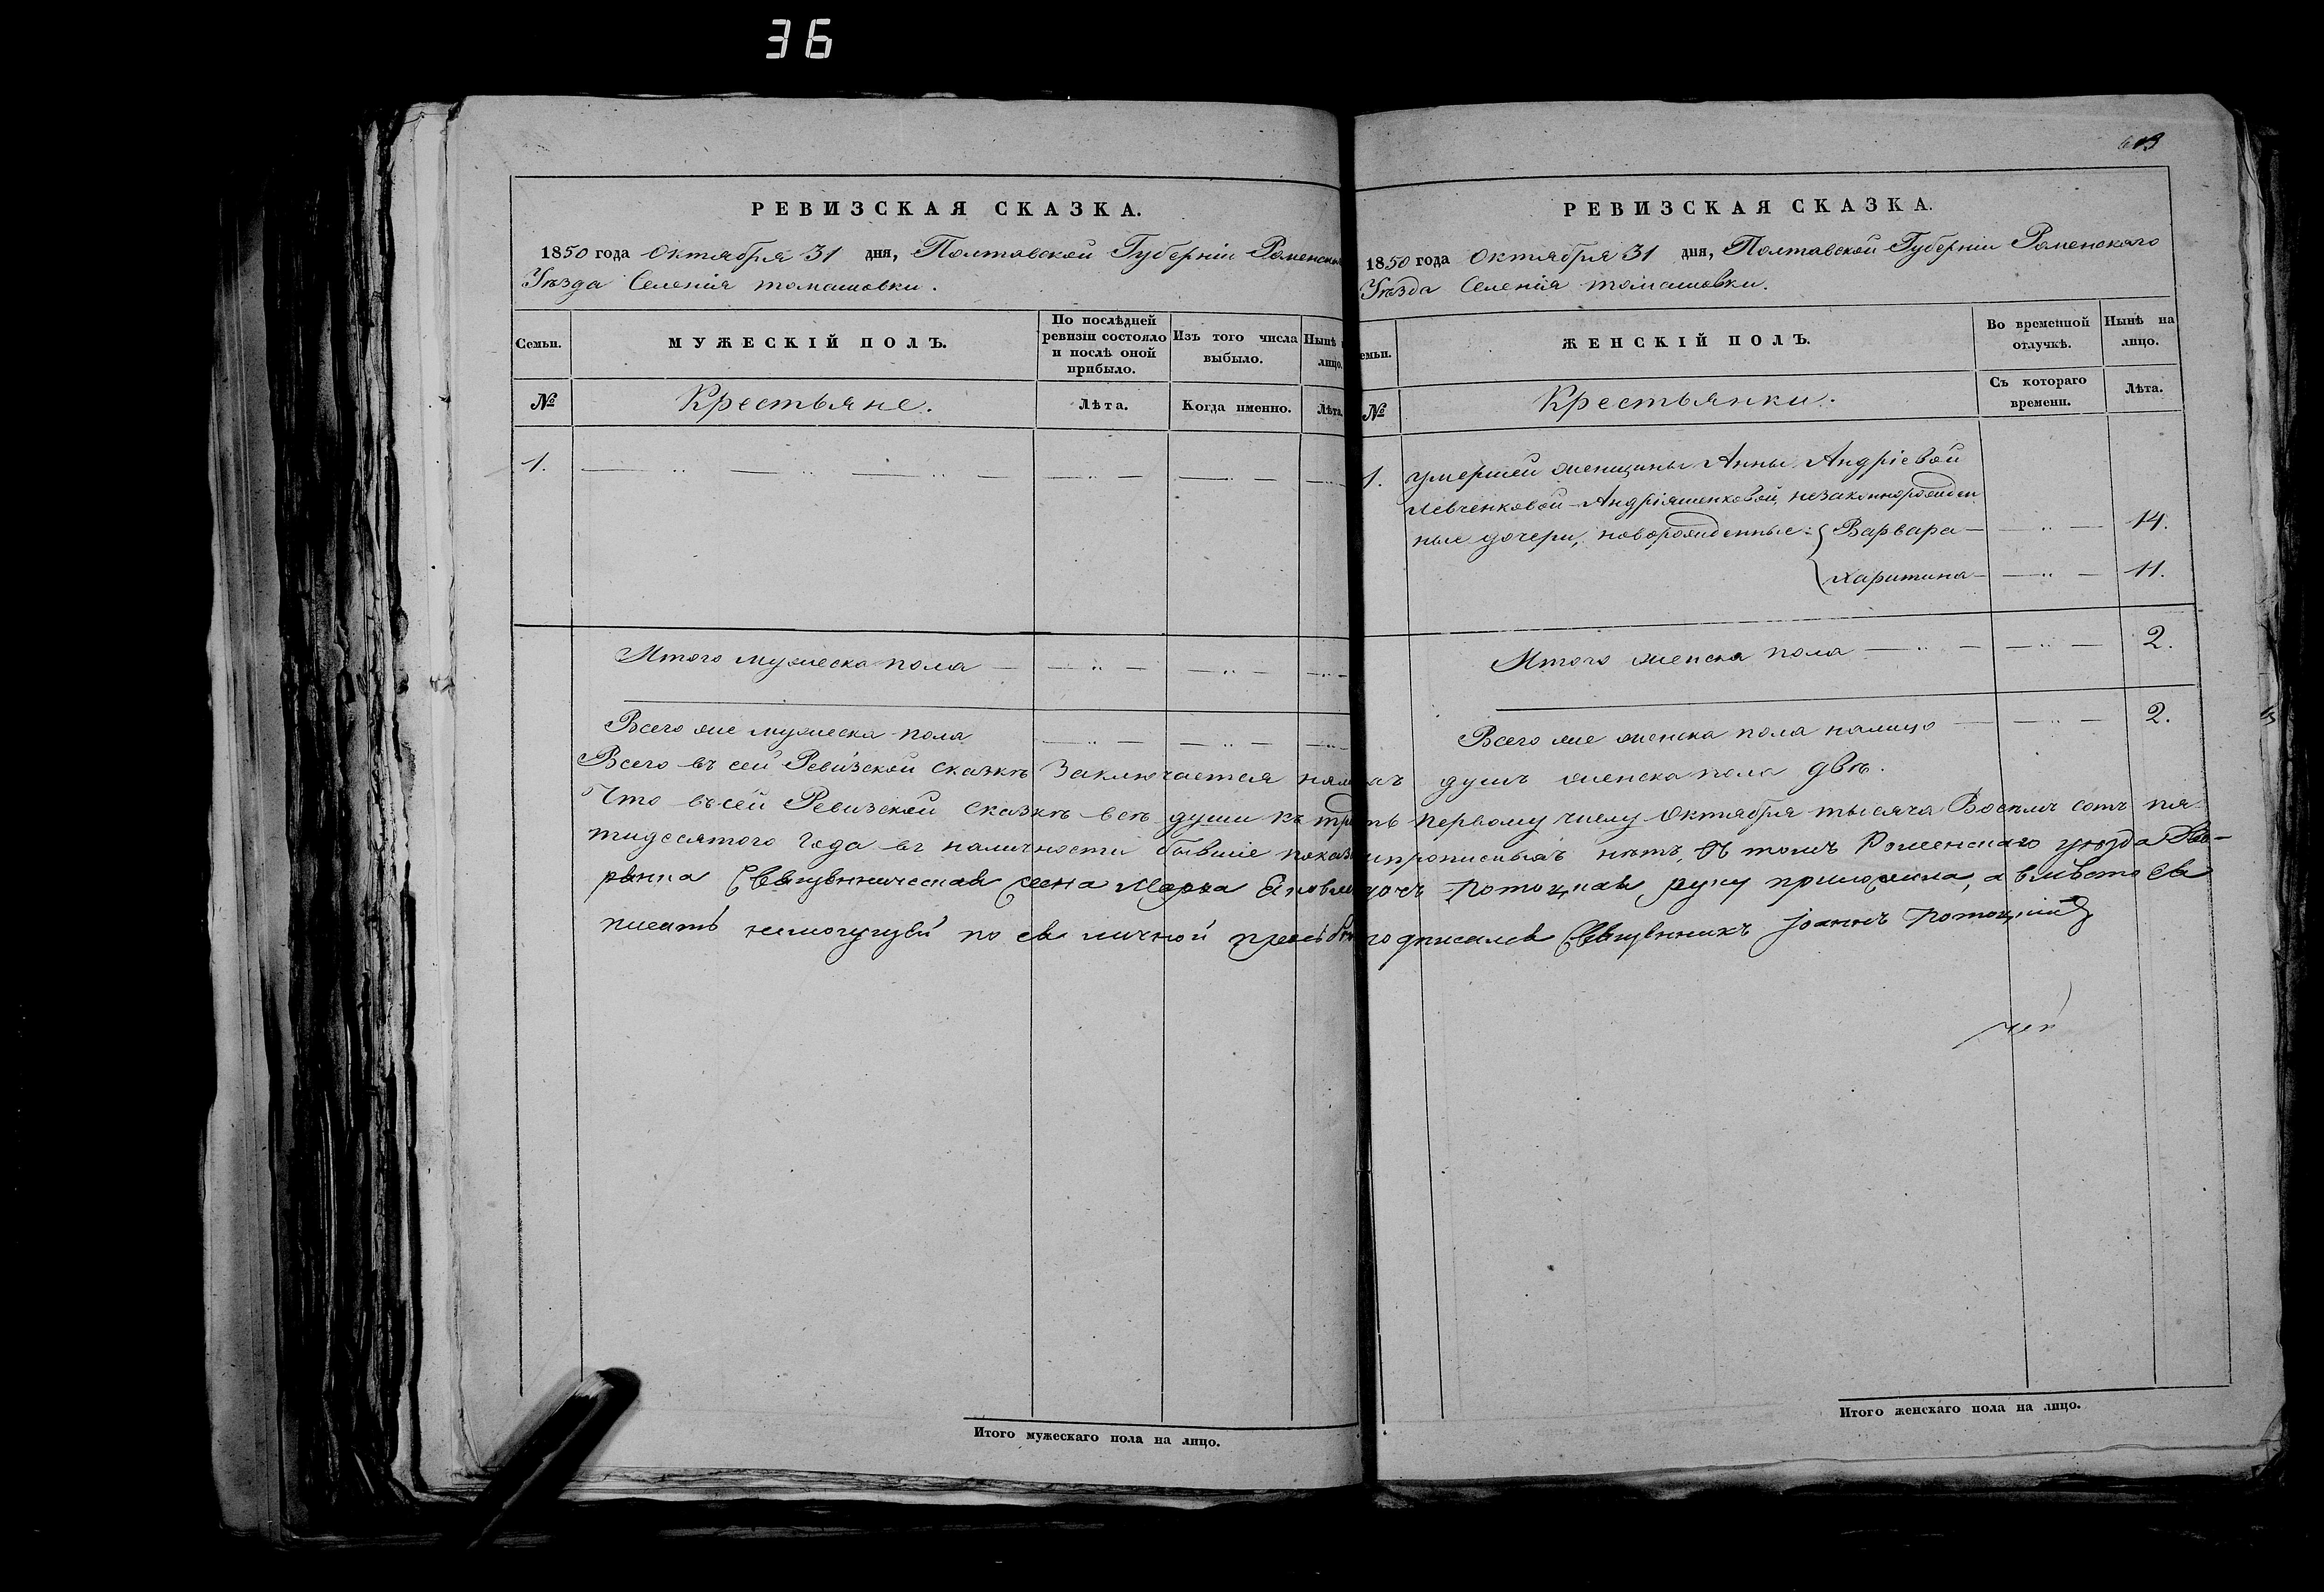 36
РЕВИЗСКАЯ СКАЗКА.
1850 года Октября 31 дня, Полтавской Губерніи Роменска
Уѣзда Селенія томашовки.
Семьи.
МУЖЕСКІЙ ПОЛЪ.
По послѣдней ревизіи состояло и послѣ оной прибыло.
Изъ того числа выбыло.
Нынѣ лицо.
№
Крестьяне.
Лѣта.
Когда именно.
Лѣта.
1.
Итого мужеска пола
Всего же мужеска пола
РЕВИЗСКАЯ СКАЗКА.
1850 года Октября 31 дня, Полтавской Губерніи Роменскаго
Уѣзда Селенія томашовки.
емьи.
ЖЕНСКІЙ ПОЛЪ.
Во временной отлучкѣ.
Нынѣ на лицо.
№
Крестьянки.
Съ котораго времени.
Лѣта.
1. умершей женщины Анны Андріевой
Левченковой-Андріяшенковой, незаконнорожден
ные дочери, новорожденные: Варвара 14.
Харитина 11.
Итого женска пола 2.
Всего же женска пола налицо 2.
Всего въ сей Ревизской сказкѣ Заключается душъ женска пола двѣ.
Что въ сей Ревизской сказкѣ всѣ души къ первому числу Октября тысяча Восемь сотъ пя
тидесятого Года въ наличности бывшіе показ прописныхъ нѣтъ, въ томъ Роменскаго уѣзда Дво-
рянка Священническая жена Потоцкая руку приложила, а вмѣсто ея
писать немогущей по ея личной прозьбѣ подписался Священникъ Іоаннъ Потоцкій
Итого мужескаго пола на лицо.
Итого женскаго пола на лицо.